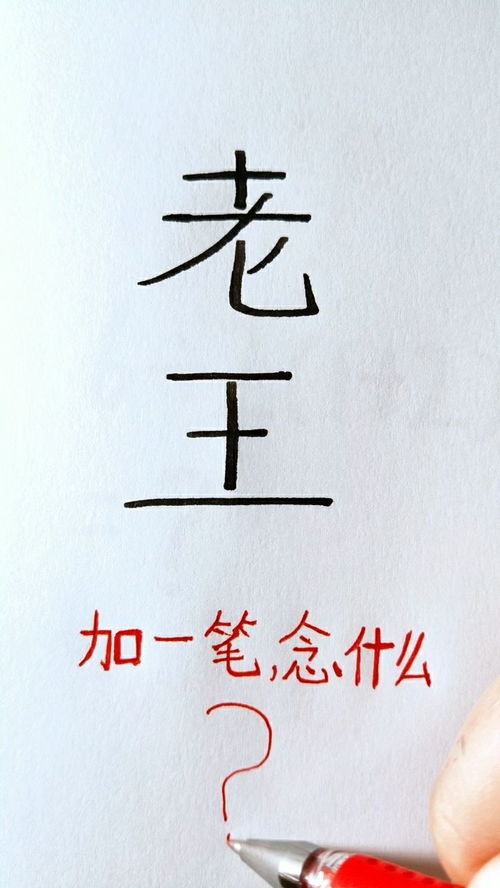 老
王
加一笔,念什么
?